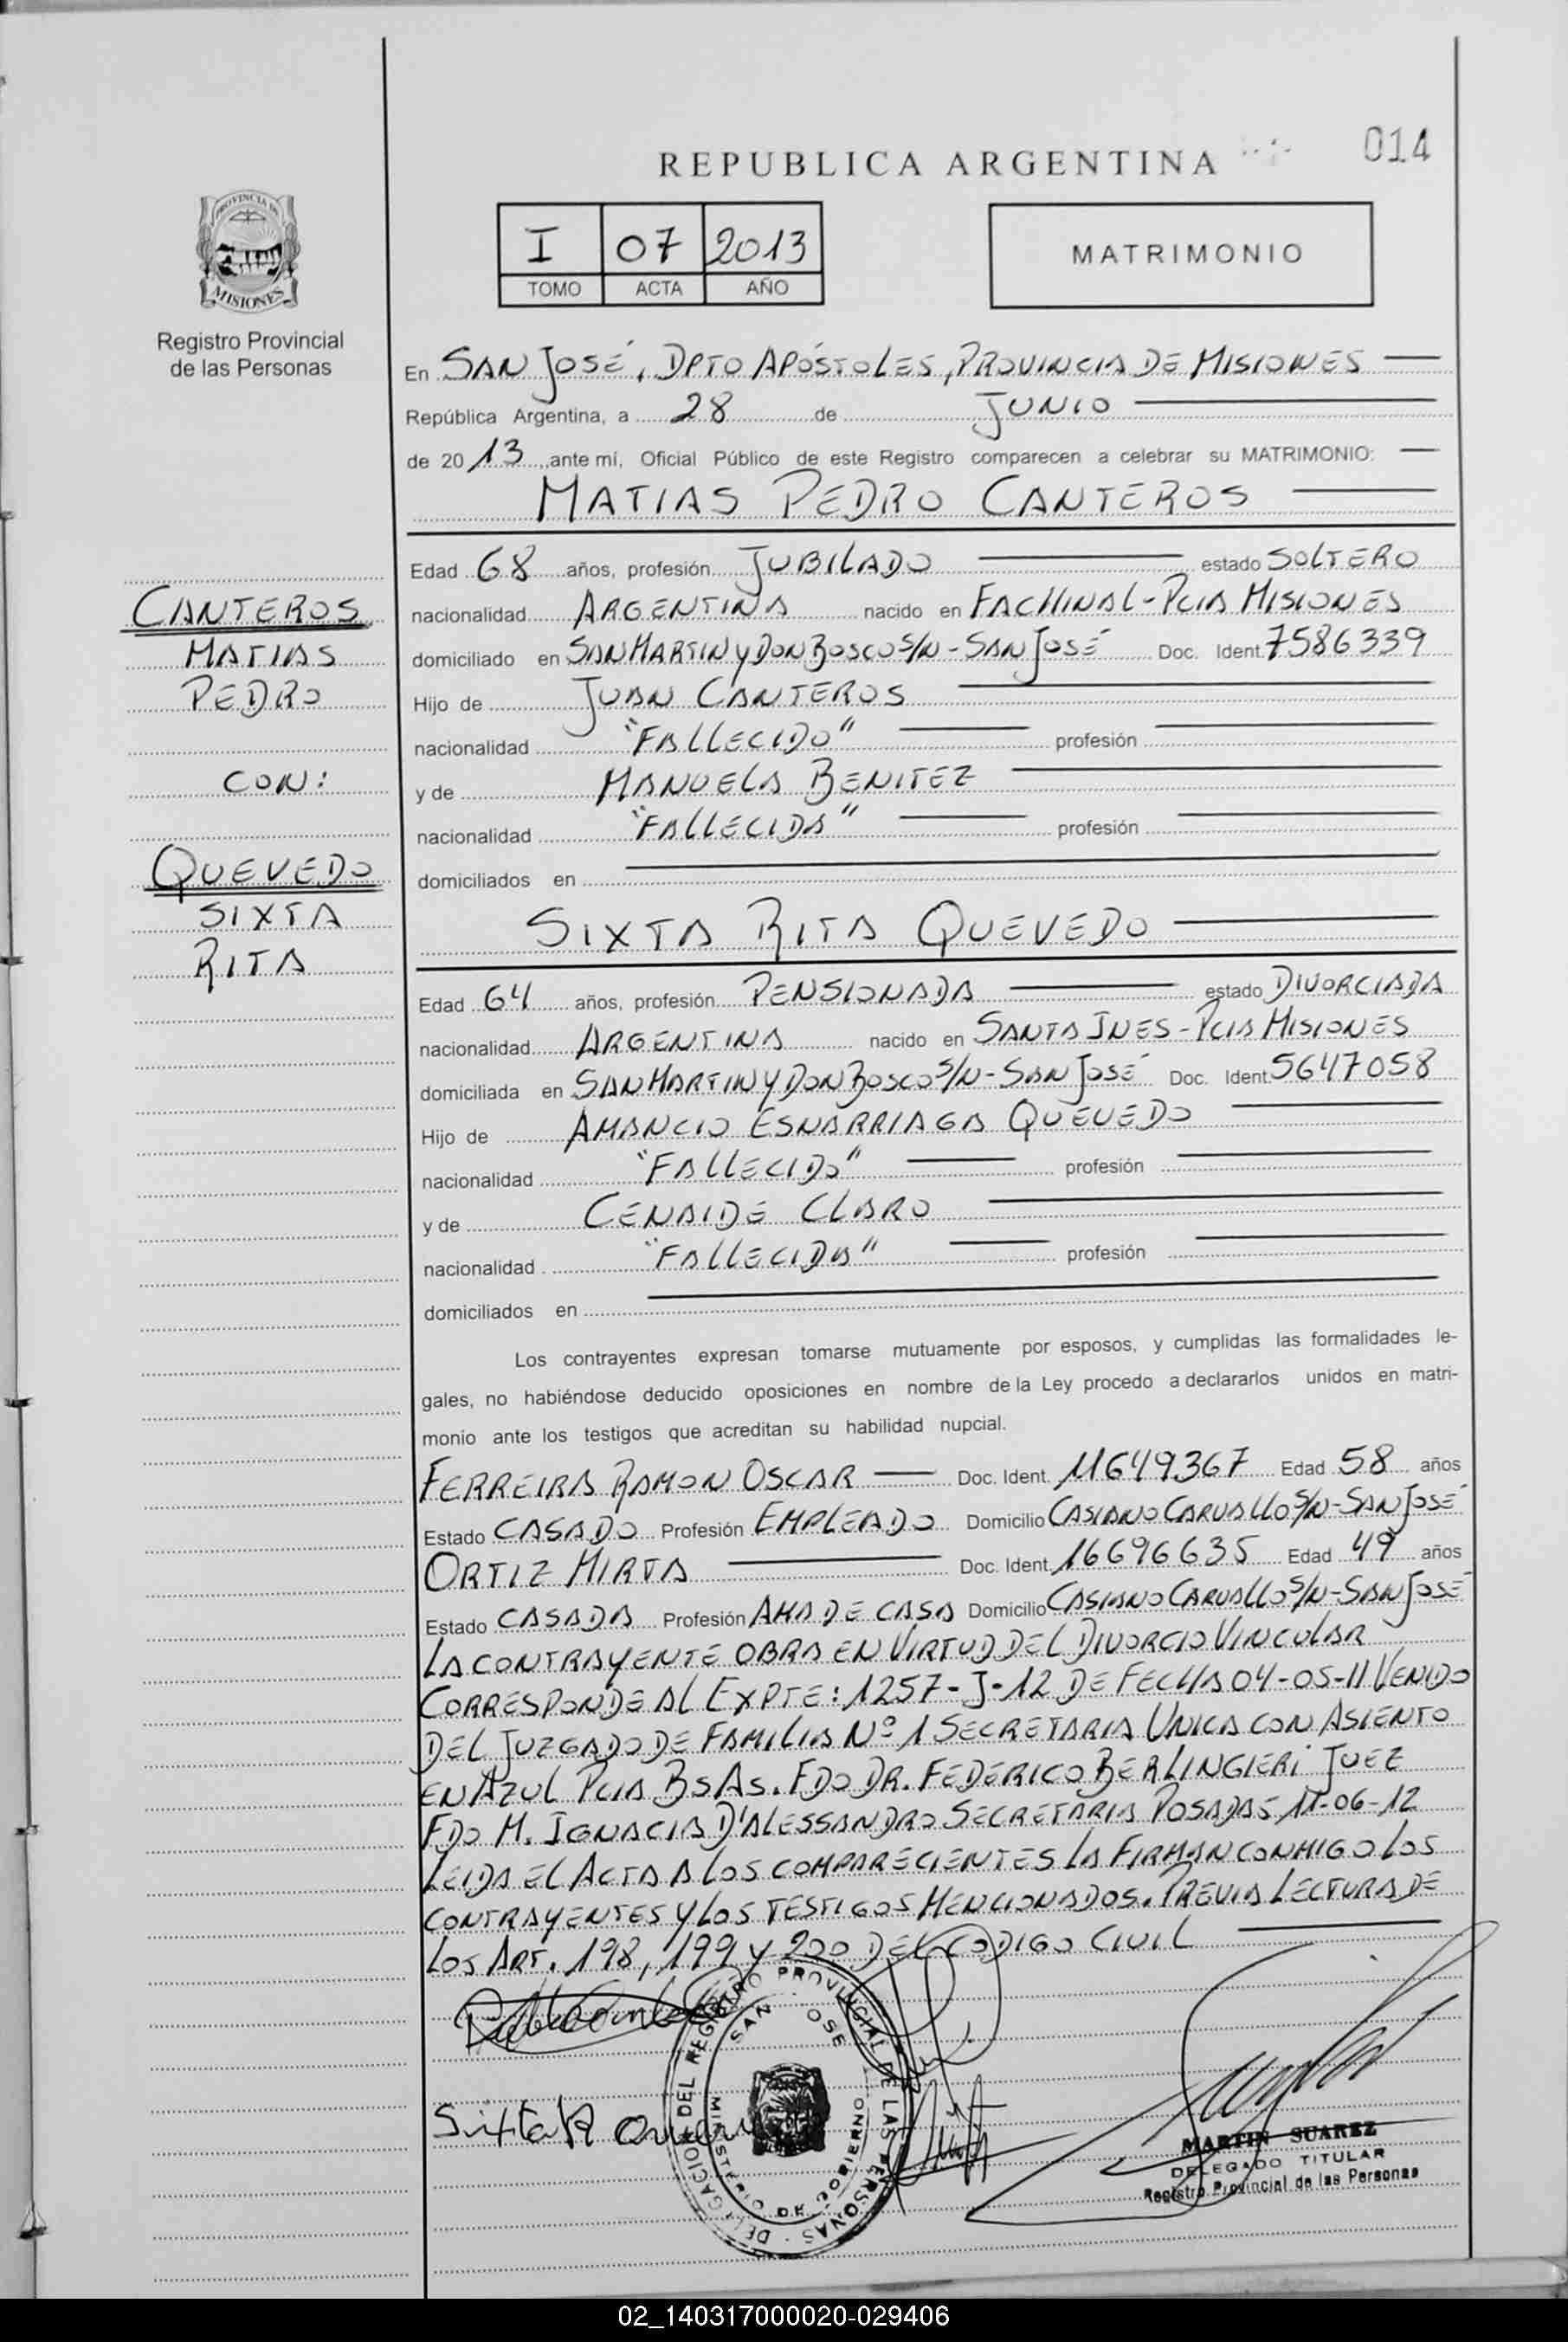 014
REPUBLICA ARGENTINA
PROVINCIA DE
MISIONES
Registro Provincial
de las Personas
I 07 2013
TOMO ACTA AÑO
MATRIMONIO
En SAN JOSÉ, DPTO APÓSTOLES, PROVINCIA DE MISIONES
República Argentina, a 28 de JUNIO
de 2013, ante mí, Oficial Público de este Registro comparecen a celebrar su MATRIMONIO:
MATIAS PEDRO CANTEROS
Edad 68 años, profesión JUBILADO estado SOLTERO
nacionalidad ARGENTINA nacido en FACHINAL-PCIA MISIONES
domiciliado en SAN MARTIN Y DON BOSCO S/N-SAN JOSÉ Doc. Ident. 7586339
Hijo de JUAN CANTEROS
nacionalidad "FALLECIDO" profesión
y de MANUELA BENITEZ
nacionalidad "FALLECIDA" profesión
domiciliados en
CANTEROS
MATIAS
PEDRO
CON:
QUEVEDO
SIXTA
RITA
SIXTA RITA QUEVEDO
Edad 64 años, profesión PENSIONADA estado DIVORCIADA
nacionalidad ARGENTINA nacido en SANTA INES-PCIA MISIONES
domiciliada en SAN MARTIN Y DON BOSCO S/N-SAN JOSÉ Doc. Ident. 5647058
Hijo de AMANCIO ESNARRIAGA QUEVEDO
nacionalidad "FALLECIDO" profesión
y de CENAIDE CLARO
nacionalidad "FALLECIDA" profesión
domiciliados en
Los contrayentes expresan tomarse mutuamente por esposos, y cumplidas las formalidades le-
gales, no habiéndose deducido oposiciones en nombre de la Ley procedo a declararlos unidos en matri-
monio ante los testigos que acreditan su habilidad nupcial.
FERREIRA RAMON OSCAR Doc. Ident. 11649367 Edad 58 años
Estado CASADO Profesión EMPLEADO Domicilio CASIANO CARVALLO S/N-SAN JOSÉ
ORTIZ MIRTA Doc. Ident. 16696635 Edad 49 años
Estado CASADA Profesión AMA DE CASA Domicilio CASIANO CARVALLO S/N-SAN JOSÉ
LA CONTRAYENTE OBRA EN VIRTUD DEL DIVORCIO VINCULAR
CORRESPONDE AL EXPTE: 1257-J-12 DE FECHA 04-05-11 VENIDO
DEL JUZGADO DE FAMILIA Nº 1 SECRETARIA UNICA CON ASIENTO
EN AZUL PCIA BS AS. FDO DR. FEDERICO BERLINGIERI JUEZ
FDO M. IGNACIA D'ALESSANDRO SECRETARIA POSADAS 11-06-12
LEIDA EL ACTA A LOS COMPARECIENTES LA FIRMAN CONMIGO LOS
CONTRAYENTES Y LOS TESTIGOS MENCIONADOS. PREVIA LECTURA DE
LOS ART. 198, 199 Y 200 DEL CODIGO CIVIL
DELEGACION DEL REGISTRO PROVINCIAL DE LAS PERSONAS
SAN JOSE
MINISTERIO DE GOBIERNO
Sixta R
MARTIN SUAREZ
DELEGADO TITULAR
Registro Provincial de las Personas
02_140317000020-029406